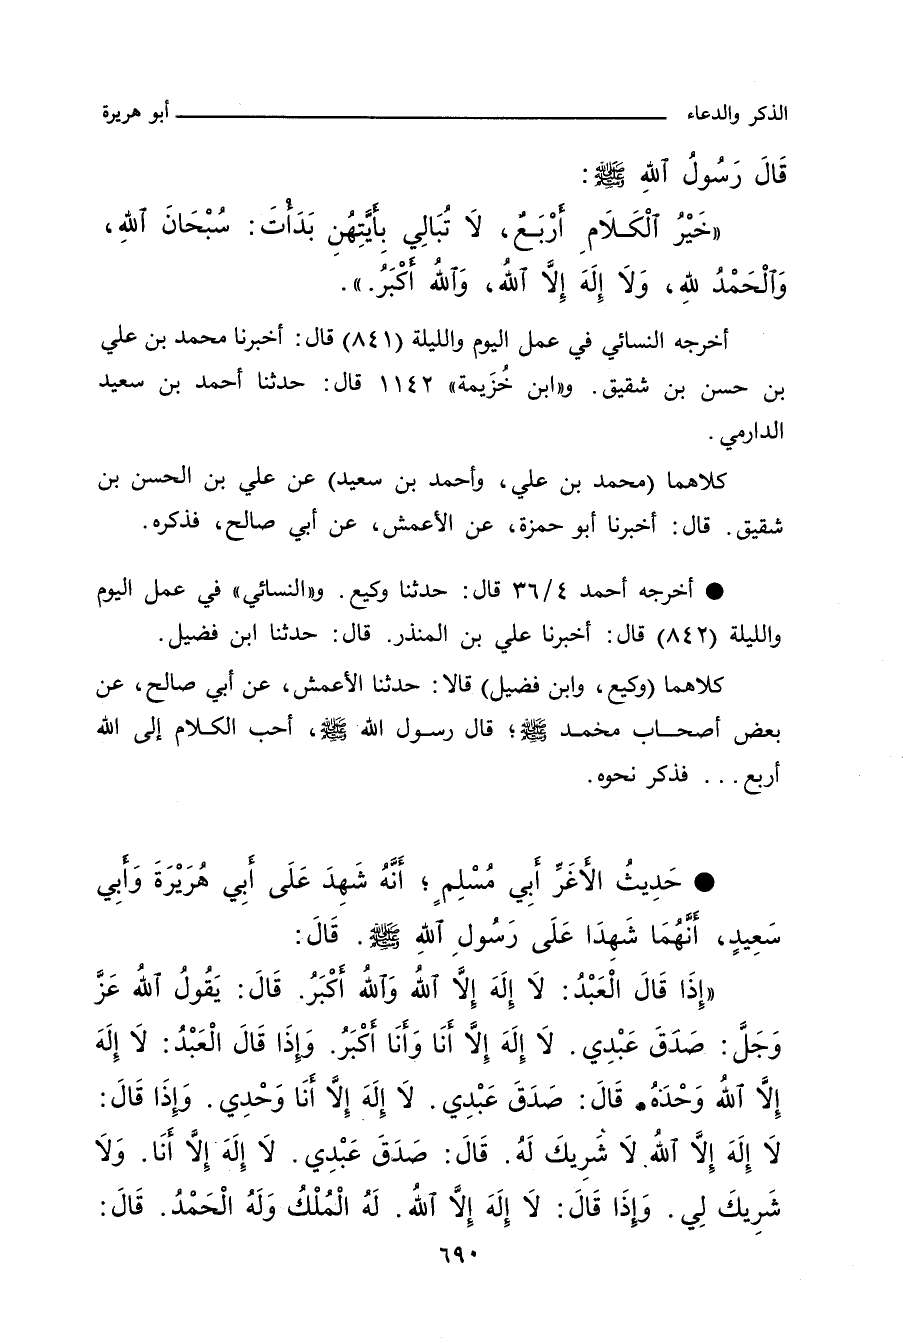 الذكر والدعاء ــــــــــــــــ أبو هريرة
قَالَ رَسُولُ ٱللهِ ﷺ :
«خَيْرُ ٱلْكَـلَامِ أَرْبَـعٌ، لَا تُبَالِي بِأَيَّتِهِنَّ بَدَأْتَ: سُبْحَانَ ٱللهِ،
وَٱلْحَمْدُ لِلهِ، وَلَا إِلَهَ إِلَّا ٱللهُ، وَٱللهُ أَكْبَرُ.».
أخرجه النسائي في عمل اليوم والليلة (٨٤١) قال: أخبرنا محمد بن علي
بن حسن بن شقيق. و«ابن خُزَيمة» ١١٤٢ قال: حدثنا أحمد بن سعيد
الدارمي.
كلاهما (محمد بن علي، وأحمد بن سعيد) عن علي بن الحسن بن
شقيق. قال: أخبرنا أبو حمزة، عن الأعمش، عن أبي صالح، فذكره.
● أخرجه أحمد ٣٦/٤ قال: حدثنا وكيع. و«النسائي» في عمل اليوم
والليلة (٨٤٢) قال: أخبرنا علي بن المنذر. قال: حدثنا ابن فضيل.
كلاهما (وكيع، وابن فضيل) قالا: حدثنا الأعمش، عن أبي صالح، عن
بعض أصحـاب محمـد ﷺ؛ قال رسـول الله ﷺ، أحب الكـلام إلى الله
أربع... فذكر نحوه.
● حَدِيثُ الأَغَرِّ أَبِي مُسْلِمٍ؛ أَنَّهُ شَهِدَ عَلَى أَبِي هُرَيْرَةَ وَأَبِي
سَعِيدٍ، أَنَّهُمَا شَهِدَا عَلَى رَسُولِ ٱللهِ ﷺ. قَالَ:
«إِذَا قَالَ الْعَبْدُ: لَا إِلَهَ إِلَّا ٱللهُ وَٱللهُ أَكْبَرُ. قَالَ: يَقُولُ ٱللهُ عَزَّ
وَجَلَّ: صَدَقَ عَبْدِي. لَا إِلَهَ إِلَّا أَنَا وَأَنَا أَكْبَرُ. وَإِذَا قَالَ الْعَبْدُ: لَا إِلَهَ
إِلَّا ٱللهُ وَحْدَهُ. قَالَ: صَدَقَ عَبْدِي. لَا إِلَهَ إِلَّا أَنَا وَحْدِي. وَإِذَا قَالَ:
لَا إِلَهَ إِلَّا ٱللهُ. لَا شَرِيكَ لَهُ. قَالَ: صَدَقَ عَبْدِي. لَا إِلَهَ إِلَّا أَنَا. وَلَا
شَرِيكَ لِي. وَإِذَا قَالَ: لَا إِلَهَ إِلَّا ٱللهُ. لَهُ الْمُلْكُ وَلَهُ الْحَمْدُ. قَالَ:
٦٩٠